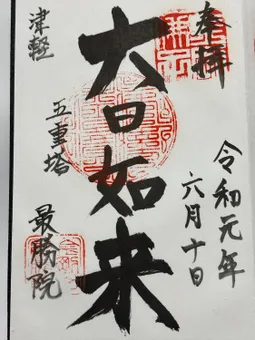 奉拝
令和元年
六月十日
大日如来
津軽
五重塔
最勝院